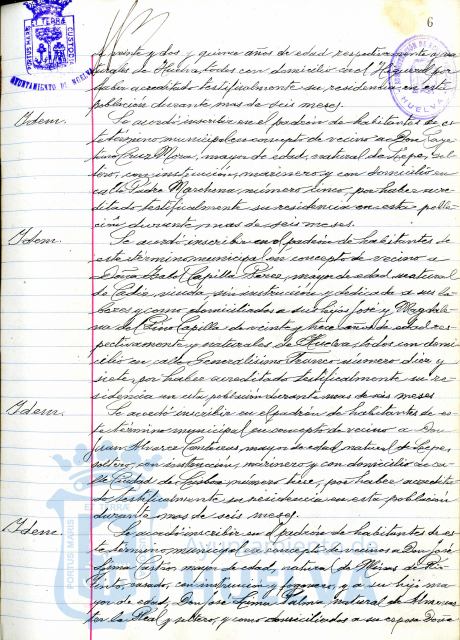 6
AYUNTAMIENTO DE HUELVA
HUELVA
veinte y dos y quince años de edad respectivamente y na-
turales de Huelva todos con domicilio en el Humeral por
haber acreditado testificalmente su residencia en esta
población durante mas de seis meses.
Idem. Se acordó inscribir en el padrón de habitantes de es-
te término municipal en concepto de vecino a Don Caye-
tano Cruz Mora, mayor de edad, natural de Lepe, sol-
tero, con instrucción, marinero y con domicilio en
calle Padre Marchena número cinco, por haber acre-
ditado testificalmente su residencia en esta pobla-
ción durante mas de seis meses.
Idem. Se acordó inscribir en el padrón de habitantes de
este término municipal en concepto de vecino a
Doña Isabel Capilla Pérez, mayor de edad, natural
de Cádiz, viuda, sin instrucción y dedicada a sus la-
bores y como domiciliados a sus hijos José y Magdale-
na del Pino Capilla de veinte y trece años de edad res-
pectivamente y naturales de Huelva, todos con domi-
cilio en calle Generalísimo Franco número diez y
siete, por haber acreditado testificalmente su re-
sidencia en esta población durante mas de seis meses
Idem. Se acordó inscribir en el padrón de habitantes de es-
te término municipal en concepto de vecino a Don
Juan Alvarez Contreras mayor de edad natural de Lepe,
soltero, con instrucción, marinero y con domicilio en ca-
lle Ciudad de número trece, por haber acredita-
do testificalmente su residencia en esta población
durante mas de seis meses.
Idem. Se acordó inscribir en el padrón de habitantes de es-
te término municipal en concepto de vecinos a Don José
Lima mayor de edad, natural de Minas de Rio-
tinto, casado, con instrucción y fogonero, y a su hijo ma-
yor de edad, Don José Lima Palma, natural de
la Real y soltero, y como domiciliados a su esposa Doña
PORTUS MARIS
ET TERRAE
Ayuntamiento de
HUELVA